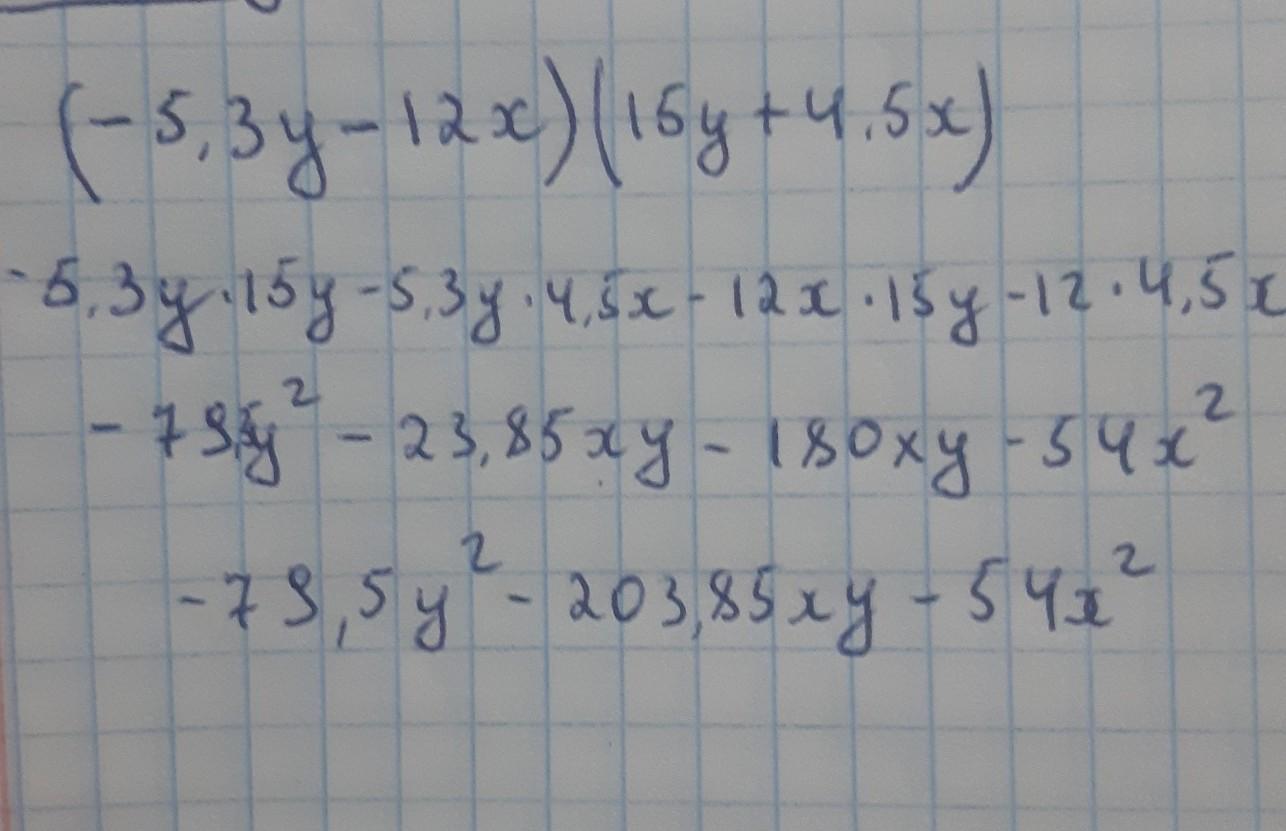 (-5,3y-12x)(15y+4,5x)
-5,3y·15y-5,3y·4,5x-12x·15y-12·4,5x
-79,5y²-23,85xy-180xy-54x²
-79,5y²-203,85xy-54x²